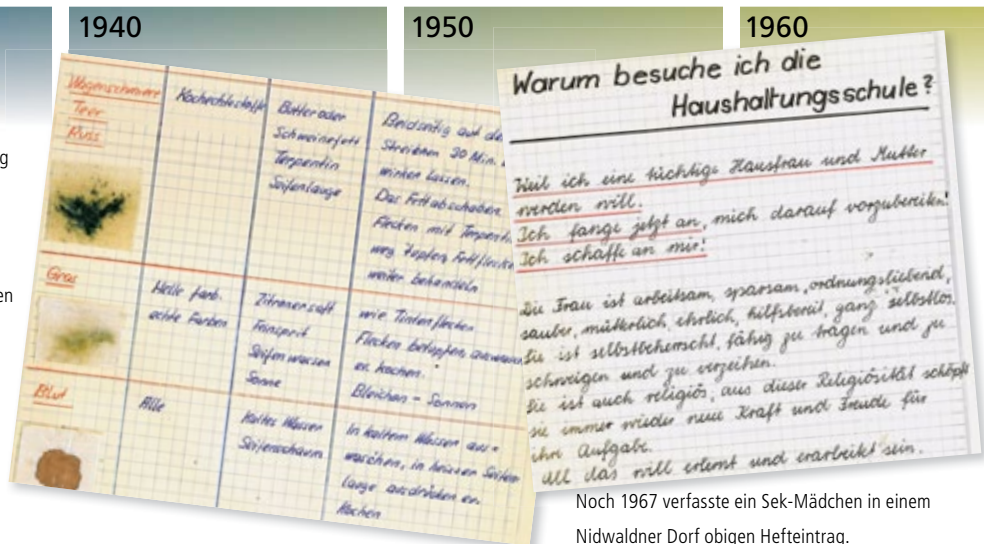 1940
1950
1960
g
en
Wagenschmiere
Teer
Russ
Butter oder
Schweinefett
Terpentin
Seifenlauge
Beidseitig auf
Streichen 30 Min.
wirken lassen.
Das Fett abschaben.
Flecken mit
weg tupfen,
weiter behandeln
Gras
Helle farb.
echte Farben
Zitronensaft
Feinsprit
Seifenwasser
Sonne
wie Tintenflecken
Flecken betupfen,
ev. kochen.
Bleichen - Sonnen
Blut
Alle
Kaltes Wasser
Seifenschaum
In kaltem Wasser aus=
waschen, in heisser Seifen
lauge ausdrücken ev.
kochen
Warum besuche ich die
Haushaltungsschule?
Weil ich eine tüchtige Hausfrau und Mutter
werden will.
Ich fange jetzt an, mich darauf vorzubereiten!
Ich schaffe an mir!
Die Frau ist arbeitsam, sparsam, ordnungsliebend,
sauber, mütterlich, ehrlich, hilfsbereit, ganz selbstlos.
Sie ist selbstbeherrscht, fähig zu tragen und zu
schweigen und zu verzeihen.
Sie ist auch religiös, aus dieser Religiösität schöpft
sie immer wieder neue Kraft und Freude für
ihre Aufgabe.
All das will erlernt und erarbeitet sein.
Noch 1967 verfasste ein Sek-Mädchen in einem
Nidwaldner Dorf obigen Hefteintrag.